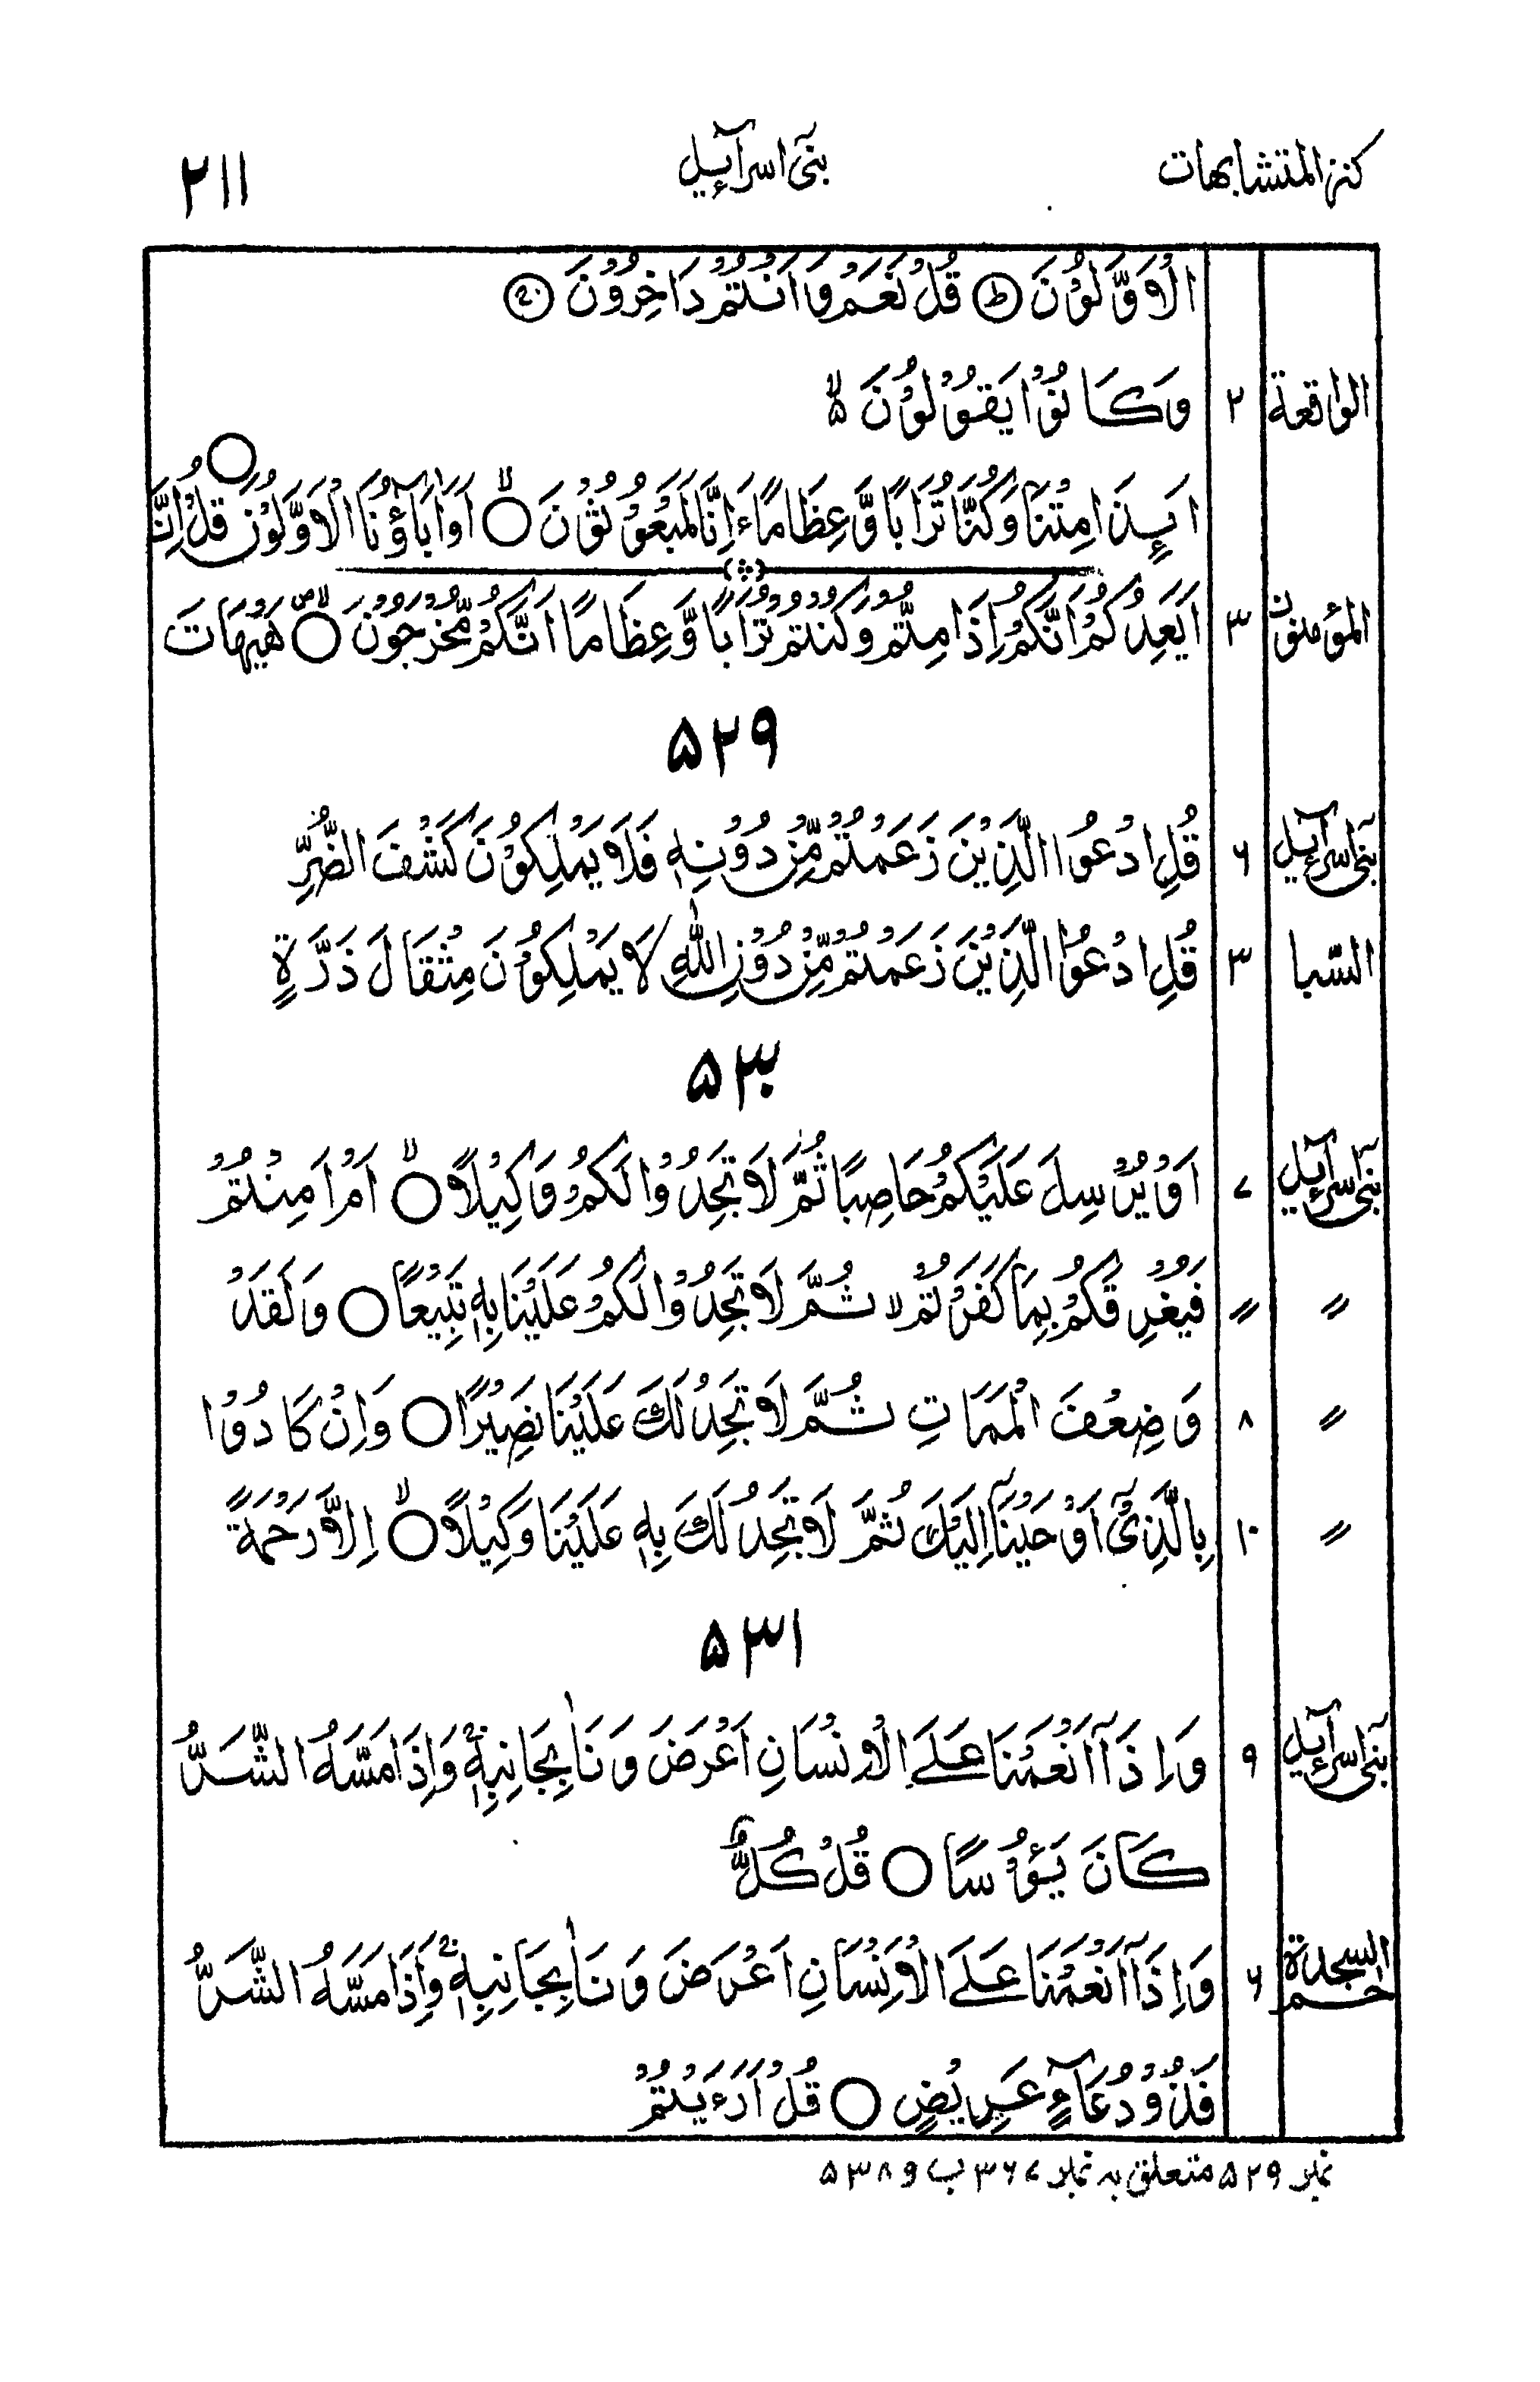 كنز المتشابهات بنیٓ اسرآءیل ٢١١
الْاَوَّلُوْنَ ؕ قُلْ نَعَمْ وَاَنْتُمْ دَاخِرُوْنَ
الواقعة ٢ وَكَانُوْا يَقُوْلُوْنَ ۙ۬
اَئِذَا مِتْنَا وَكُنَّا تُرَابًا وَّعِظَامًا ءَاِنَّا لَمَبْعُوْثُوْنَ ۙ اَوَاٰبَآؤُنَا الْاَوَّلُوْنَ ○ قُلْ اِنَّ
المؤمنون ٣ اَيَعِدُكُمْ اَنَّكُمْ اِذَا مِتُّمْ وَكُنْتُمْ تُرَابًا وَّعِظَامًا اَنَّكُمْ مُّخْرَجُوْنَ ○ هَيْهَاتَ
۵۲۹
بنیٓ اسرآءیل ۶ قُلِ ادْعُوا الَّذِيْنَ زَعَمْتُمْ مِّنْ دُوْنِهٖ فَلَا يَمْلِكُوْنَ كَشْفَ الضُّرِّ
السّبا ٣ قُلِ ادْعُوا الَّذِيْنَ زَعَمْتُمْ مِّنْ دُوْنِ اللّٰهِ لَا يَمْلِكُوْنَ مِثْقَالَ ذَرَّةٍ
۵۳۰
بنیٓ اسرآءیل ۷ اَوْ يُرْسِلَ عَلَيْكُمْ حَاصِبًا ثُمَّ لَا تَجِدُوْا لَكُمْ وَكِيْلًا ○ۙ اَمْ اَمِنْتُمْ
〃 〃 فَيُغْرِقَكُمْ بِمَا كَفَرْتُمْ ۙ ثُمَّ لَا تَجِدُوْا لَكُمْ عَلَيْنَا بِهٖ تَبِيْعًا ○ وَلَقَدْ
〃 ۸ وَضِعْفَ الْمَمَاتِ ثُمَّ لَا تَجِدُ لَكَ عَلَيْنَا نَصِيْرًا ○ وَاِنْ كَادُوْا
〃 ۱۰ بِالَّذِيْٓ اَوْحَيْنَآ اِلَيْكَ ثُمَّ لَا تَجِدُ لَكَ بِهٖ عَلَيْنَا وَكِيْلًا ○ۙ اِلَّا رَحْمَةً
۵۳۱
بنیٓ اسرآءیل ۹ وَاِذَآ اَنْعَمْنَا عَلَى الْاِنْسَانِ اَعْرَضَ وَنَاٰ بِجَانِبِهٖ ۚ وَاِذَا مَسَّهُ الشَّرُّ
كَانَ يَـُٔوْسًا ○ قُلْ كُلٌّ
حٰم السجدة ۶ وَاِذَآ اَنْعَمْنَا عَلَى الْاِنْسَانِ اَعْرَضَ وَنَاٰ بِجَانِبِهٖ ۚ وَاِذَا مَسَّهُ الشَّرُّ
فَذُوْ دُعَآءٍ عَرِيْضٍ ○ قُلْ اَرَءَيْتُمْ
نمبر ۵۲۹ متعلق به نمبر ۳۶۷ ب و ۵۳۸